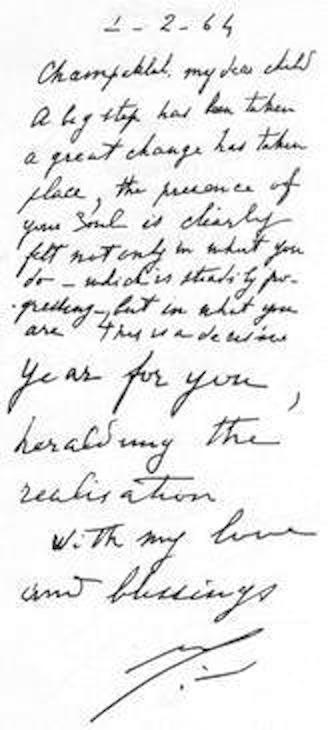 1-2-64
Champaklal, my dear child
A big step has been taken
a great change has taken
place, the presence of
your Soul is clearly
felt not only in what you
do – which is steadily pro-
gressing –, but in what you
are This is a decisive
year for you,
heralding the
realisation
with my love
and blessings